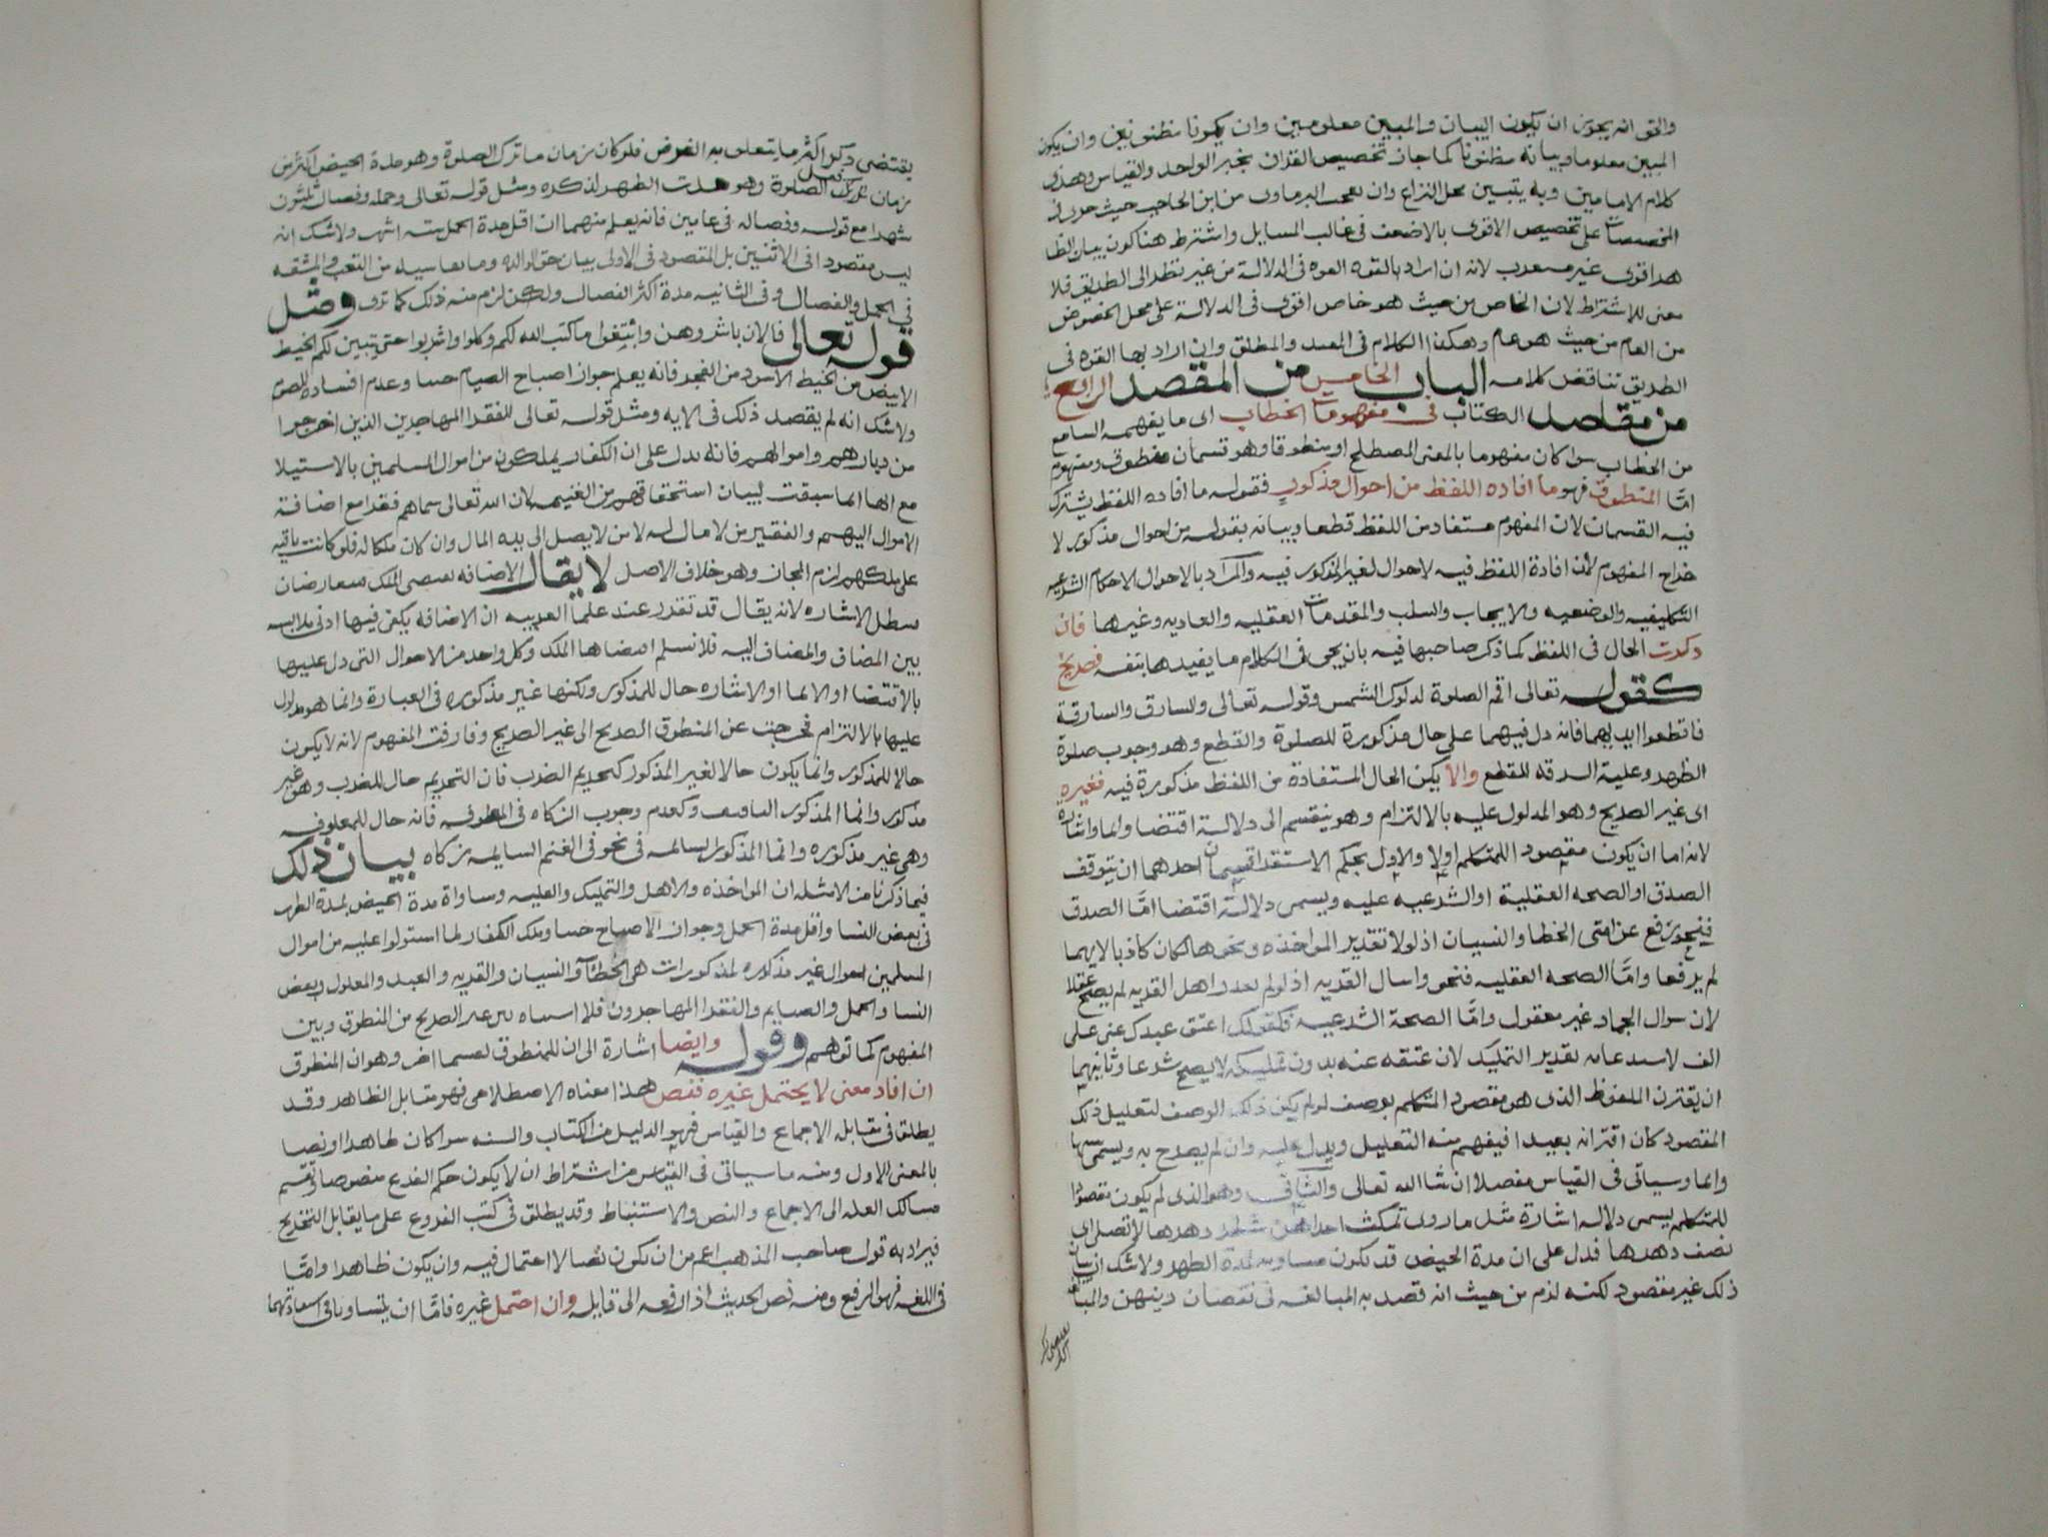 والحق انه يجوز ان يكون البيان والمبين معلومين وان يكونا مظنونين وان يكون
المبين معلوما وبيانه مظنونا كما جاز تخصيص القران بخبر الواحد والقياس وهذا
كلام الامامين وبه يتبين محل النزاع وان تعجب البرماوي من ابن الحاجب حيث
المخصصات على تخصيص الاقوى بالاضعف في غالب المسايل واشترط هنا كون بيان الظا
هر اقوى غير لانه ان اراد بالقوه القوه في الدلالة من غير نظر الى الطريق فلا
معنى للاشتراط لان الخاص من حيث هو خاص اقوى في الدلالة على محل الخصوص
من العام من حيث هو عام وهكذا الكلام في المقيد والمطلق وان اراد بها القوه في
الطريق تناقض كلامه الباب الخامس من المقصد الرابع
من مقاصد الكتاب في مفهومات الخطاب اى ما يفهمه السامع
من الخطاب سوا كان مفهوما بالمعنى المصطلح او منطوقا وهو قسمان منطوق ومفهوم
امّا المنطوق فهو ما افاده اللفظ من احوال مذكور فقوله ما افاده اللفظ يشترك
فيه القسمان لان المفهوم مستفاد من اللفظ قطعا وبيانه بقوله من احوال مذكور لا
خراج المفهوم لأن افادة اللفظ فيه لاحوال لغير المذكور فيه والمراد بالاحوال الاحكام الشرعيه
التكليفيه والوضعيه والايجاب والسلب والمقدمات العقليه والعاديه وغيرها فان
ذكرت الحال في اللفظ كما ذكر صاحبها فيه بان يجى في الكلام ما يفيدها بنفسه فصريح
كقوله تعالى اقم الصلوة لدلوك الشمس وقوله تعالى والسارق والسارقة
فاقطعوا ايديهما فانه دل فيهما على حال مذكورة للصلوة والقطع وهو وجوب صلوة
الظهر وعلية السرقه للقطع والا يكن الحال المستفادة من اللفظ مذكورة فيه فغيره
اى غير الصريح وهو المدلول عليه بالالتزام وهو ينقسم الى دلالة اقتضا وايما واشاره
لانه اما ان يكون مقصود اللمتكلم اولا والاول بحكم الاستقرا قسمان احدهما ان يتوقف
الصدق او الصحه العقلية او الشرعيه عليه ويسمى دلالة اقتضا امّا الصدق
فنحو رفع عن امتى الخطا والنسيان اذ لولا تقدير المواخذه ونحوها لكان كاذبا لانهما
لم يرفعا وامّا الصحه العقليه فنحو واسال القريه اذ لو لم يقدر اهل القريه لم يصح عقلا
لان سوال الجماد غير معقول وامّا الصحة الشرعيه فكقولك اعتق عبدك عنى على
الف لاستدعائه تقدير التمليك لان عتقه عنه بدون تمليكه لا يصح شرعا وثانيهما
ان يقترن الملفوظ الذى هو مقصود المتكلم بوصف لو لم يكن ذلك الوصف لتعليل ذلك
المقصود كان اقترانه بعيدا فيفهم منه التعليل ويدل عليه وان لم يصرح به ويسمى تنبيها
وايما وسياتى في القياس مفصلا ان شا الله تعالى والثانى وهو الذى لم يكون مقصودا
للمتكلم يسمى دلالة اشارة مثل ما روى تمكث احداهن شطر دهرها لا تصلى اى
نصف دهرها فدل على ان مدة الحيض قد تكون مساويه لمدة الطهر ولا شك ان بيان
ذلك غير مقصود لكنه لزم من حيث انه قصد به المبالغه في نقصان دينهن والمبالغه
يقتضى ذكر اكثر ما يتعلق به الغرض فلو كان زمان ما ترك الصلوة وهو مدة الحيض اكثر من
زمان فعل الصلوة وهو مدت الطهر لذكره ومثل قوله تعالى وحمله وفصاله ثلثون
شهرا مع قوله وفصاله في عامين فانه يعلم منهما ان اقل مدة الحمل سته اشهر ولا شك انه
ليس مقصودا في الاثنين بل المقصود في الاولى بيان حق الوالده وما تقاسيه من التعب والمشقه
في الحمل والفصال وفى الثانيه مدة اكثر الفصال ولكن لزم منه ذلك كما ترى ومثل
قوله تعالى فالان باشروهن وابتغوا ما كتب الله لكم وكلوا واشربوا حتى يتبين لكم الخيط
الابيض من الخيط الاسود من الفجر فانه يعلم جواز اصباح الصيام جنبا وعدم افساده للصوم
ولا شك انه لم يقصد ذلك في الايه ومثل قوله تعالى للفقرا المهاجرين الذين اخرجوا
من ديارهم واموالهم فانه يدل على ان الكفار يملكون من اموال المسلمين بالاستيلا
مع انها انما سيقت لبيان استحقاقهم من الغنيمه لان الله تعالى سماهم فقرا مع اضافة
الاموال اليهم والفقير من لا مال له لا من لا يصل الى يده المال وان كان ملكا له فلو كانت باقيه
على ملكهم لزم المجاز وهو خلاف الاصل لا يقال الاضافه تقتضى الملك فتعارضان
فتبطل الاشاره لانه يقال قد تقرر عند علما العربيه ان الاضافة يكفى فيها ادنى ملابسه
بين المضاف والمضاف اليه فلا نسلم اقتضاها الملك وكل واحد من الاحوال التى دل عليها
بالاقتضا او الايما او الاشاره حال للمذكور ولكنها غير مذكوره في العبارة وانما هو مدلول
عليها بالالتزام فخرجت عن المنطوق الصريح الى غير الصريح وفارقت المفهوم لانه لا يكون
حالا للمذكور وانما يكون حالا لغير المذكور كتحريم الضرب فان التحريم حال للضرب وهو غير
مذكور وانما المذكور التافيف وكعدم وجوب الزكاه في المعلوفه فانه حال للمعلوفه
وهى غير مذكوره وانما المذكور السايمه في نحو في الغنم السايمه زكاه بيان ذلك
فيما ذكرنا من الامثله ان المواخذه والاهل والتمليك والعليه ومساواة مدة الحيض لمدة الطهر
في بعض النسا واقل مدة الحمل وجواز الاصباح جنبا وملك الكفار لما استولوا عليه من اموال
المسلمين احوال غير مذكوره لمذكورات هى الخطأ والنسيان والقريه والعبد والمعلول وبعض
النسا والحمل والصايم والفقرا المهاجرون فلا اشتباه بين غير الصريح من المنطوق وبين
المفهوم كما توهم وقوله وايضا اشارة الى ان للمنطوق تقسيما اخر وهو ان المنطوق
ان افاد معنى لا يحتمل غيره فنص هذا معناه الاصطلاحى فهو مقابل الظاهر وقد
يطلق في مقابلة الاجماع والقياس فهو الدليل من الكتاب والسنه سوا كان ظاهرا او نصا
بالمعنى الاول ومنه ما سياتى في القياس من اشتراط ان لا يكون حكم الفرع منصوصا وتقسيم
مسالك العله الى الاجماع والنص والاستنباط وقد يطلق في كتب الفروع على ما يقابل التخريج
فيراد به قول صاحب المذهب اعم من ان يكون نصا لا احتمال فيه وان يكون ظاهرا وامّا
في اللغه فهو الرفع ومنه نص الحديث اذا رفعه الى قايله وان احتمل غيره فامّا ان يتساويا في